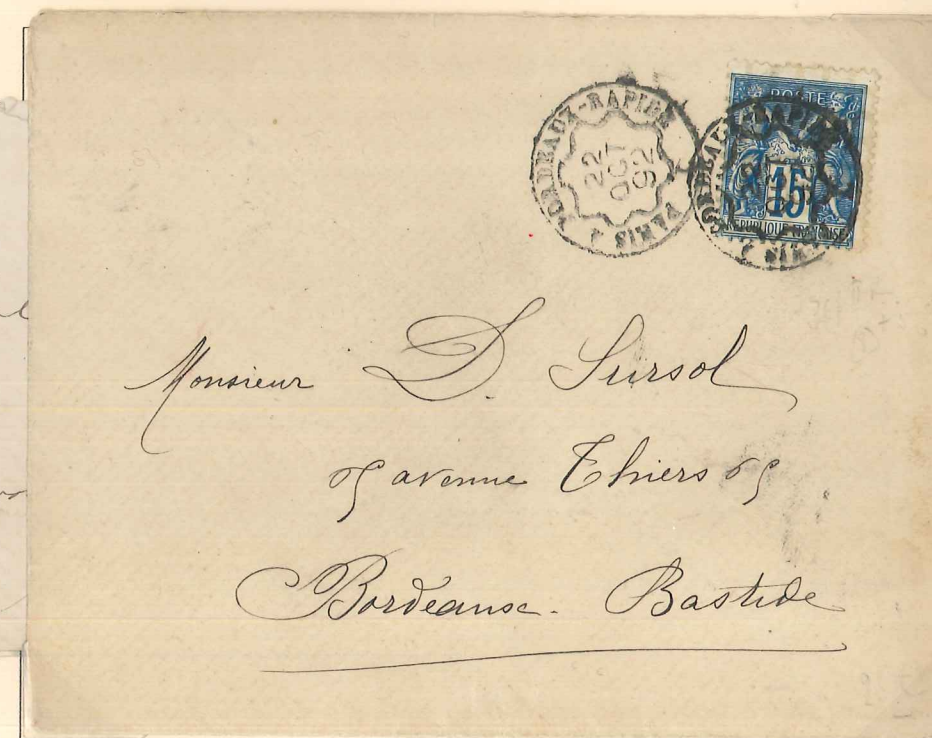 BORDEAUX-RAPIDE
22
OCT
92
PARIS
POSTE
15
REPUBLIQUE FRANÇAISE
Monsieur D. Sursol
65 avenue Thiers 65
Bordeaux - Bastide